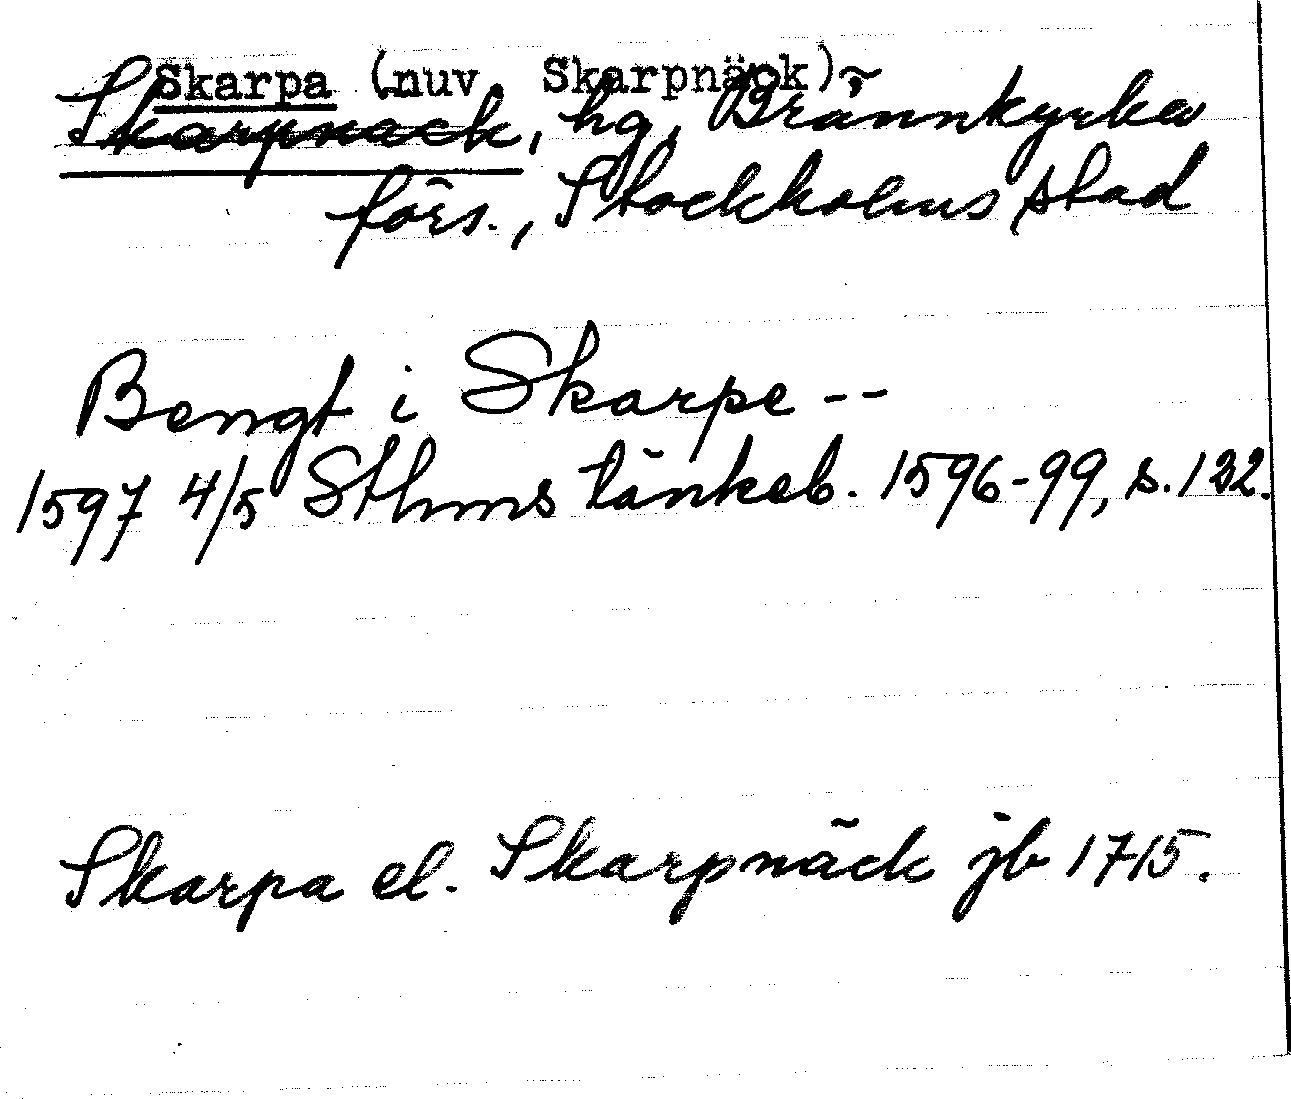 Skarpa (nuv. Skarpnäck)
Skarpnäck, hg, Brännkyrka
förs., Stockholms stad
Bengt i Skarpe --
1597 4/5 Sthms tänkeb. 1596-99, s. 132.
Skarpa el. Skarpnäck jb 1715.